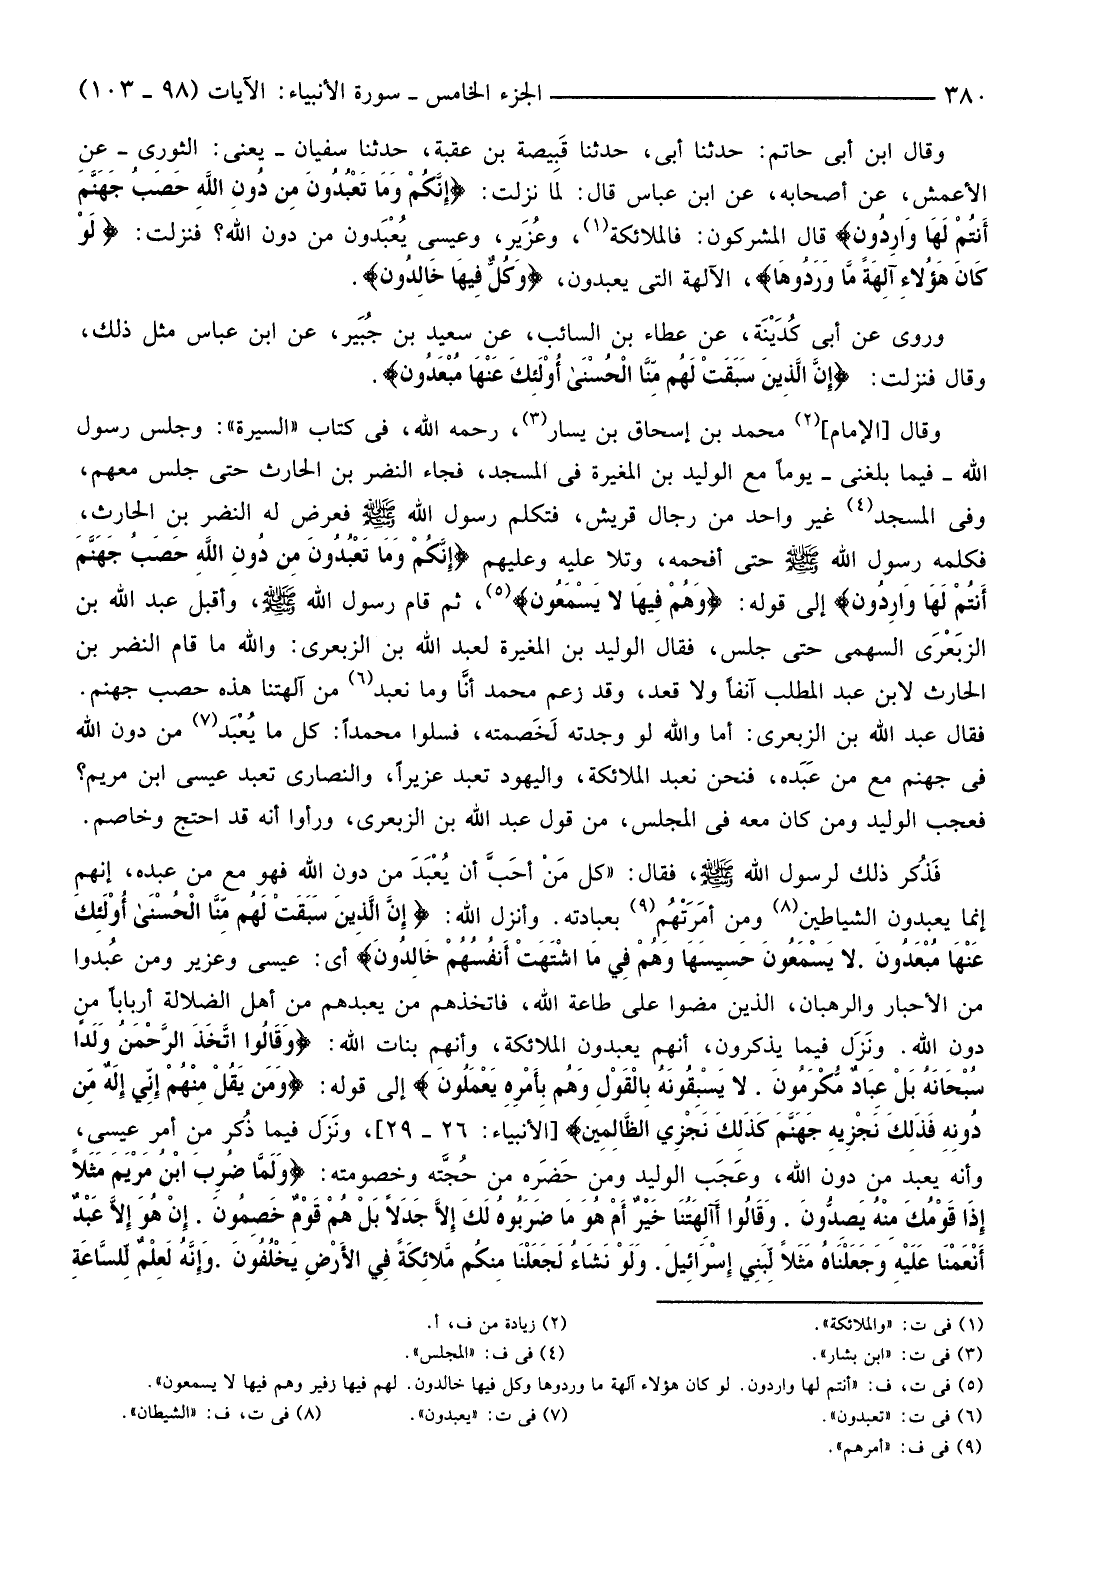 ٣٨٠ ــــــ الجزء الخامس ـ سورة الأنبياء: الآيات (٩٨ ـ ١٠٣)
وقال ابن أبى حاتم: حدثنا أبى، حدثنا قَبِيصة بن عقبة، حدثنا سفيان ـ يعنى: الثورى ـ عن
الأعمش، عن أصحابه، عن ابن عباس قال: لما نزلت: ﴿إِنَّكُمْ وَمَا تَعْبُدُونَ مِن دُونِ اللَّهِ حَصَبُ جَهَنَّمَ
أَنتُمْ لَهَا وَارِدُون﴾ قال المشركون: فالملائكة(١)، وعُزَير، وعيسى يُعْبَدون من دون الله؟ فنزلت: ﴿ لَوْ
كَانَ هَؤُلاءِ آلِهَةً مَّا وَرَدُوهَا﴾، الآلهة التى يعبدون، ﴿وَكُلٌّ فِيهَا خَالِدُون﴾.
وروى عن أبى كُدَيْنَة، عن عطاء بن السائب، عن سعيد بن جُبَير، عن ابن عباس مثل ذلك،
وقال فنزلت: ﴿إِنَّ الَّذِينَ سَبَقَتْ لَهُم مِّنَّا الْحُسْنَىٰ أُوْلَئِكَ عَنْهَا مُبْعَدُون﴾.
وقال [الإمام](٢) محمد بن إسحاق بن يسار(٣)، رحمه الله، فى كتاب «السيرة»: وجلس رسول
الله ـ فيما بلغنى ـ يوماً مع الوليد بن المغيرة فى المسجد، فجاء النضر بن الحارث حتى جلس معهم،
وفى المسجد(٤) غير واحد من رجال قريش، فتكلم رسول الله ﷺ فعرض له النضر بن الحارث،
فكلمه رسول الله ﷺ حتى أفحمه، وتلا عليه وعليهم ﴿إِنَّكُمْ وَمَا تَعْبُدُونَ مِن دُونِ اللَّهِ حَصَبُ جَهَنَّمَ
أَنتُمْ لَهَا وَارِدُون﴾ إلى قوله: ﴿وَهُمْ فِيهَا لا يَسْمَعُون﴾(٥)، ثم قام رسول الله ﷺ، وأقبل عبد الله بن
الزبَعْرَى السهمى حتى جلس، فقال الوليد بن المغيرة لعبد الله بن الزبعرى: والله ما قام النضر بن
الحارث لابن عبد المطلب آنفاً ولا قعد، وقد زعم محمد أنَّا وما نعبد(٦) من آلهتنا هذه حصب جهنم.
فقال عبد الله بن الزبعرى: أما والله لو وجدته لَخَصمته، فسلوا محمداً: كل ما يُعْبَد(٧) من دون الله
فى جهنم مع من عَبَده، فنحن نعبد الملائكة، واليهود تعبد عزيراً، والنصارى تعبد عيسى ابن مريم؟
فعجب الوليد ومن كان معه فى المجلس، من قول عبد الله بن الزبعرى، ورأوا أنه قد احتج وخاصم.
فَذُكر ذلك لرسول الله ﷺ، فقال: «كل مَنْ أحَبَّ أن يُعْبَدَ من دون الله فهو مع من عبده، إنهم
إنما يعبدون الشياطين(٨) ومن أمَرَتْهُم(٩) بعبادته. وأنزل الله: ﴿ إِنَّ الَّذِينَ سَبَقَتْ لَهُم مِّنَّا الْحُسْنَىٰ أُوْلَئِكَ
عَنْهَا مُبْعَدُونَ .لا يَسْمَعُونَ حَسِيسَهَا وَهُمْ فِي مَا اشْتَهَتْ أَنفُسُهُمْ خَالِدُون﴾ أى: عيسى وعزير ومن عُبدوا
من الأحبار والرهبان، الذين مضوا على طاعة الله، فاتخذهم من يعبدهم من أهل الضلالة أرباباً من
دون الله. ونَزَل فيما يذكرون، أنهم يعبدون الملائكة، وأنهم بنات الله: ﴿وَقَالُوا اتَّخَذَ الرَّحْمَنُ وَلَدًا
سُبْحَانَهُ بَلْ عِبَادٌ مُّكْرَمُونَ . لا يَسْبِقُونَهُ بِالْقَوْلِ وَهُم بِأَمْرِهِ يَعْمَلُونَ ﴾ إلى قوله: ﴿وَمَن يَقُلْ مِنْهُمْ إِنِّي إِلَهٌ مِّن
دُونِهِ فَذَلِكَ نَجْزِيهِ جَهَنَّمَ كَذَلِكَ نَجْزِي الظَّالِمِين﴾ [الأنبياء: ٢٦ ـ ٢٩]، ونَزَل فيما ذُكر من أمر عيسى،
وأنه يعبد من دون الله، وعَجَب الوليد ومن حَضَره من حُجَّته وخصومته: ﴿وَلَمَّا ضُرِبَ ابْنُ مَرْيَمَ مَثَلاً
إِذَا قَوْمُكَ مِنْهُ يَصِدُّونَ . وَقَالُوا أَآلِهَتُنَا خَيْرٌ أَمْ هُوَ مَا ضَرَبُوهُ لَكَ إِلاَّ جَدَلاً بَلْ هُمْ قَوْمٌ خَصِمُونَ . إِنْ هُوَ إِلاَّ عَبْدٌ
أَنْعَمْنَا عَلَيْهِ وَجَعَلْنَاهُ مَثَلاً لِّبَنِي إِسْرَائِيلَ. وَلَوْ نَشَاءُ لَجَعَلْنَا مِنكُم مَّلائِكَةً فِي الأَرْضِ يَخْلُفُونَ .وَإِنَّهُ لَعِلْمٌ لِّلسَّاعَةِ
(١) فى ت: «والملائكة». (٢) زيادة من ف، أ.
(٣) فى ت: «ابن بشار». (٤) فى ف: «المجلس».
(٥) فى ت، ف: «أنتم لها واردون. لو كان هؤلاء آلهة ما وردوها وكل فيها خالدون. لهم فيها زفير وهم فيها لا يسمعون».
(٦) فى ت: «تعبدون». (٧) فى ت: «يعبدون». (٨) فى ت، ف: «الشيطان».
(٩) فى ف: «أمرهم».